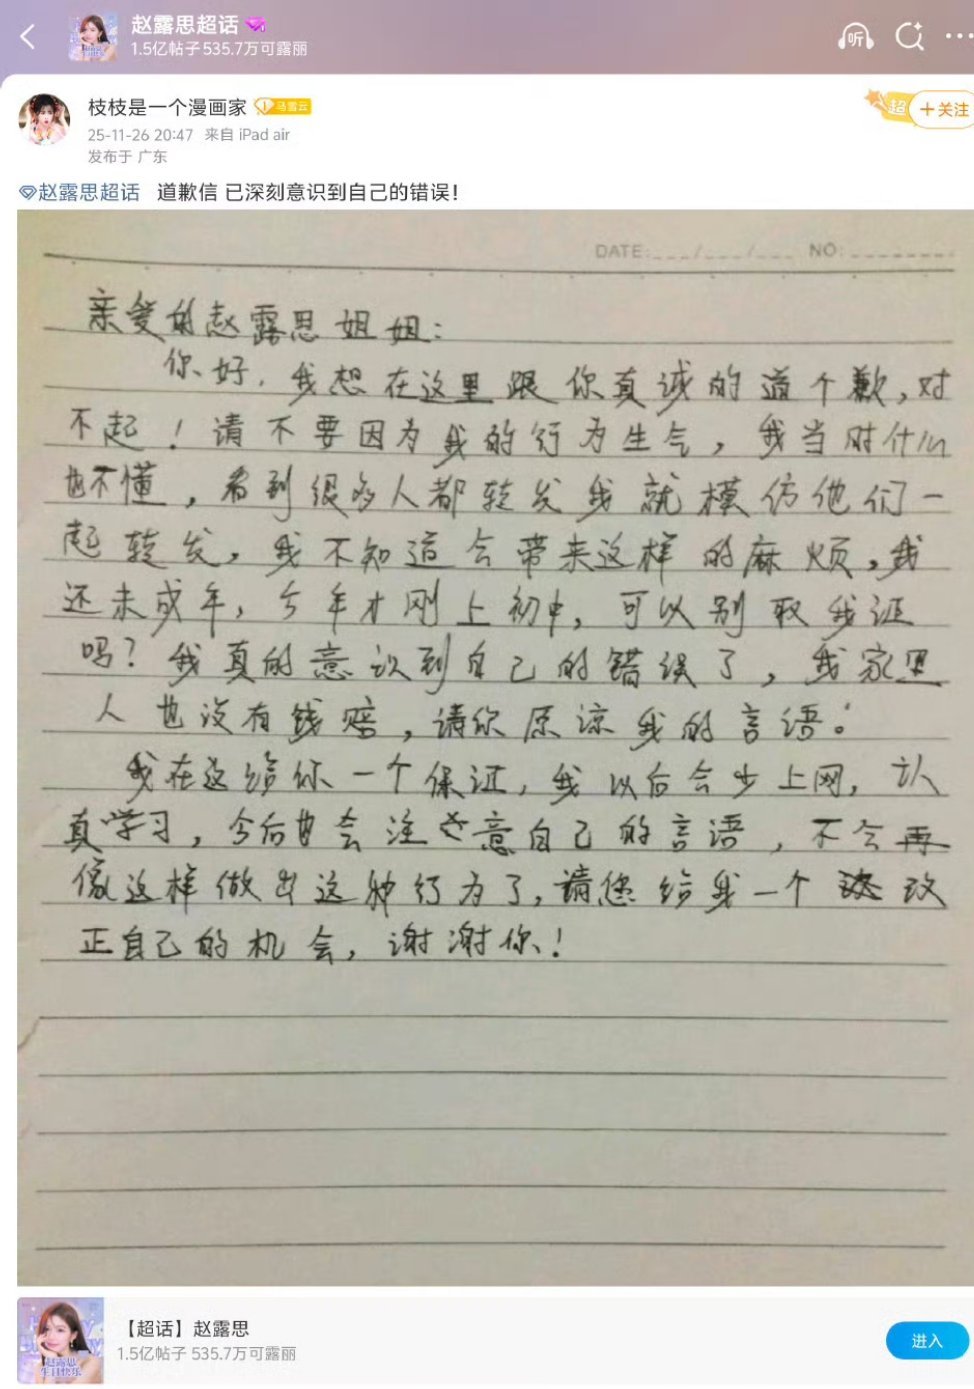 赵露思超话
1.5亿帖子 535.7万可露丽
听
枝枝是一个漫画家
25-11-26 20:47 来自 iPad air
发布于 广东
超
+关注
赵露思超话 道歉信 已深刻意识到自己的错误！
DATE:___/___/___ NO:
亲爱的赵露思姐姐：
你好，我想在这里跟你真诚的道个歉，对
不起！请不要因为我的行为生气，我当时什么
也不懂，看到很多人都转发我就模仿他们一
起转发，我不知道会带来这样的麻烦，我
还未成年，今年才刚上初中，可以别取我证
吗？我真的意识到自己的错误了，我家里
人也没有钱赔，请你原谅我的言语。
我在这给你一个保证，我以后会少上网，认
真学习，今后也会注意自己的言语，不会再
像这样做出这种行为了，请您给我一个改
正自己的机会，谢谢你！
【超话】赵露思
1.5亿帖子 535.7万可露丽
进入
赵露思
生日快乐